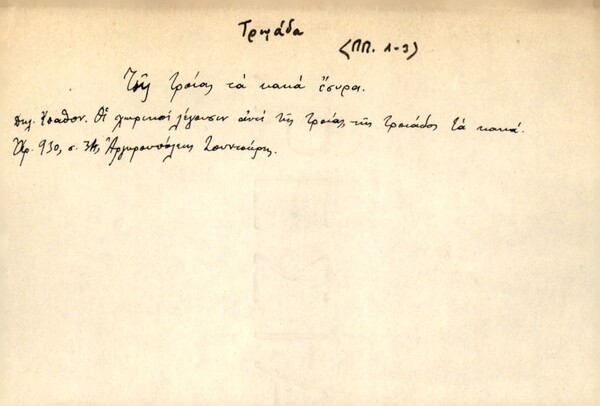 Τρῳάδα
(ΠΠ. 1-3)
Τῆς Τροίας τὰ κακὰ ἔσυρα.
Δηλ. ἔπαθον. Οἱ χωρικοὶ λέγουσιν ἀντὶ τῆς Τροίας, τῆς Τροιάδος τὰ κακά.
Χρ. 930, σ. 34, Ἀργυρουπόλεως